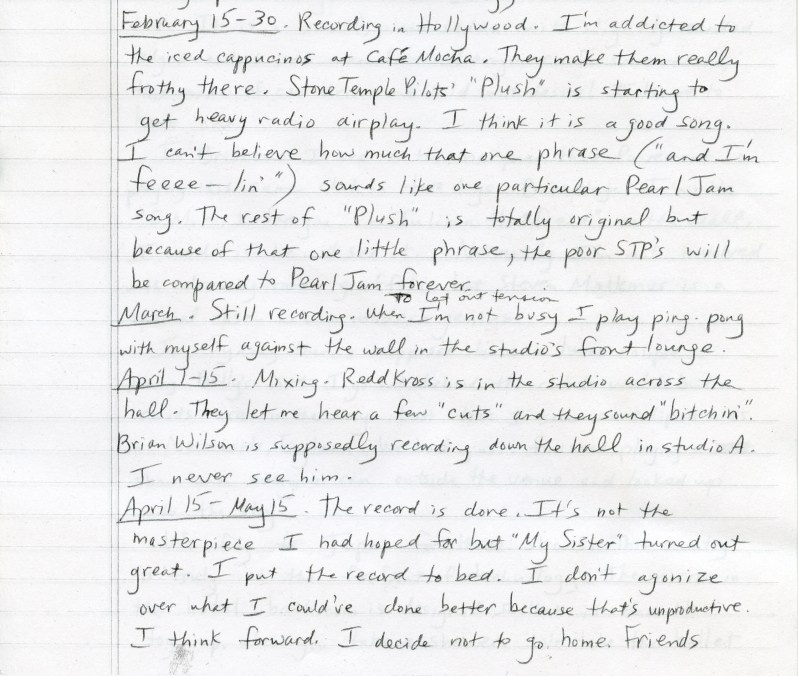 February 15-30. Recording in Hollywood. I'm addicted to
the iced cappucinos at Café Mocha. They make them really
frothy there. Stone Temple Pilots' "Plush" is starting to
get heavy radio airplay. I think it is a good song.
I can't believe how much that one phrase ("and I'm
feeee-lin'") sounds like one particular Pearl Jam
song. The rest of "Plush" is totally original but
because of that one little phrase, the poor STP's will
be compared to Pearl Jam forever.
to let out tension
March. Still recording. When I'm not busy I play ping-pong
with myself against the wall in the studio's front lounge.
April 1-15. Mixing. Redd Kross is in the studio across the
hall. They let me hear a few "cuts" and they sound "bitchin'".
Brian Wilson is supposedly recording down the hall in studio A.
I never see him.
April 15-May 15. The record is done. It's not the
masterpiece I had hoped for but "My Sister" turned out
great. I put the record to bed. I don't agonize
over what I could've done better because that's unproductive.
I think forward. I decide not to go home. Friends